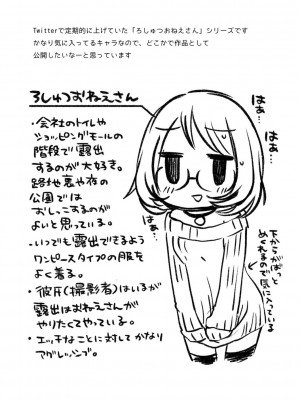 Twitterで定期的に上げていた「ろしゅつおねえさん」シリーズです
かなり気に入ってるキャラなので、どこかで作品として
公開したいなーと思っています
ろしゅつおねえさん
・会社のトイレや
ショッピングモールの
階段で露出
するのが大好き。
路地裏や夜の
公園では
おしっこするのが
よいと思っている。
・いつでも露出できるよう
ワンピースタイプの服を
よく着る。
・彼氏(撮影者)はいるが
露出はおねえさんが
やりたくてやっている。
・エッチなことに対してかなり
アグレッシブ。
はぁ…
はぁ…
はぁ…
下からがばっと
めくれるので気に入っている